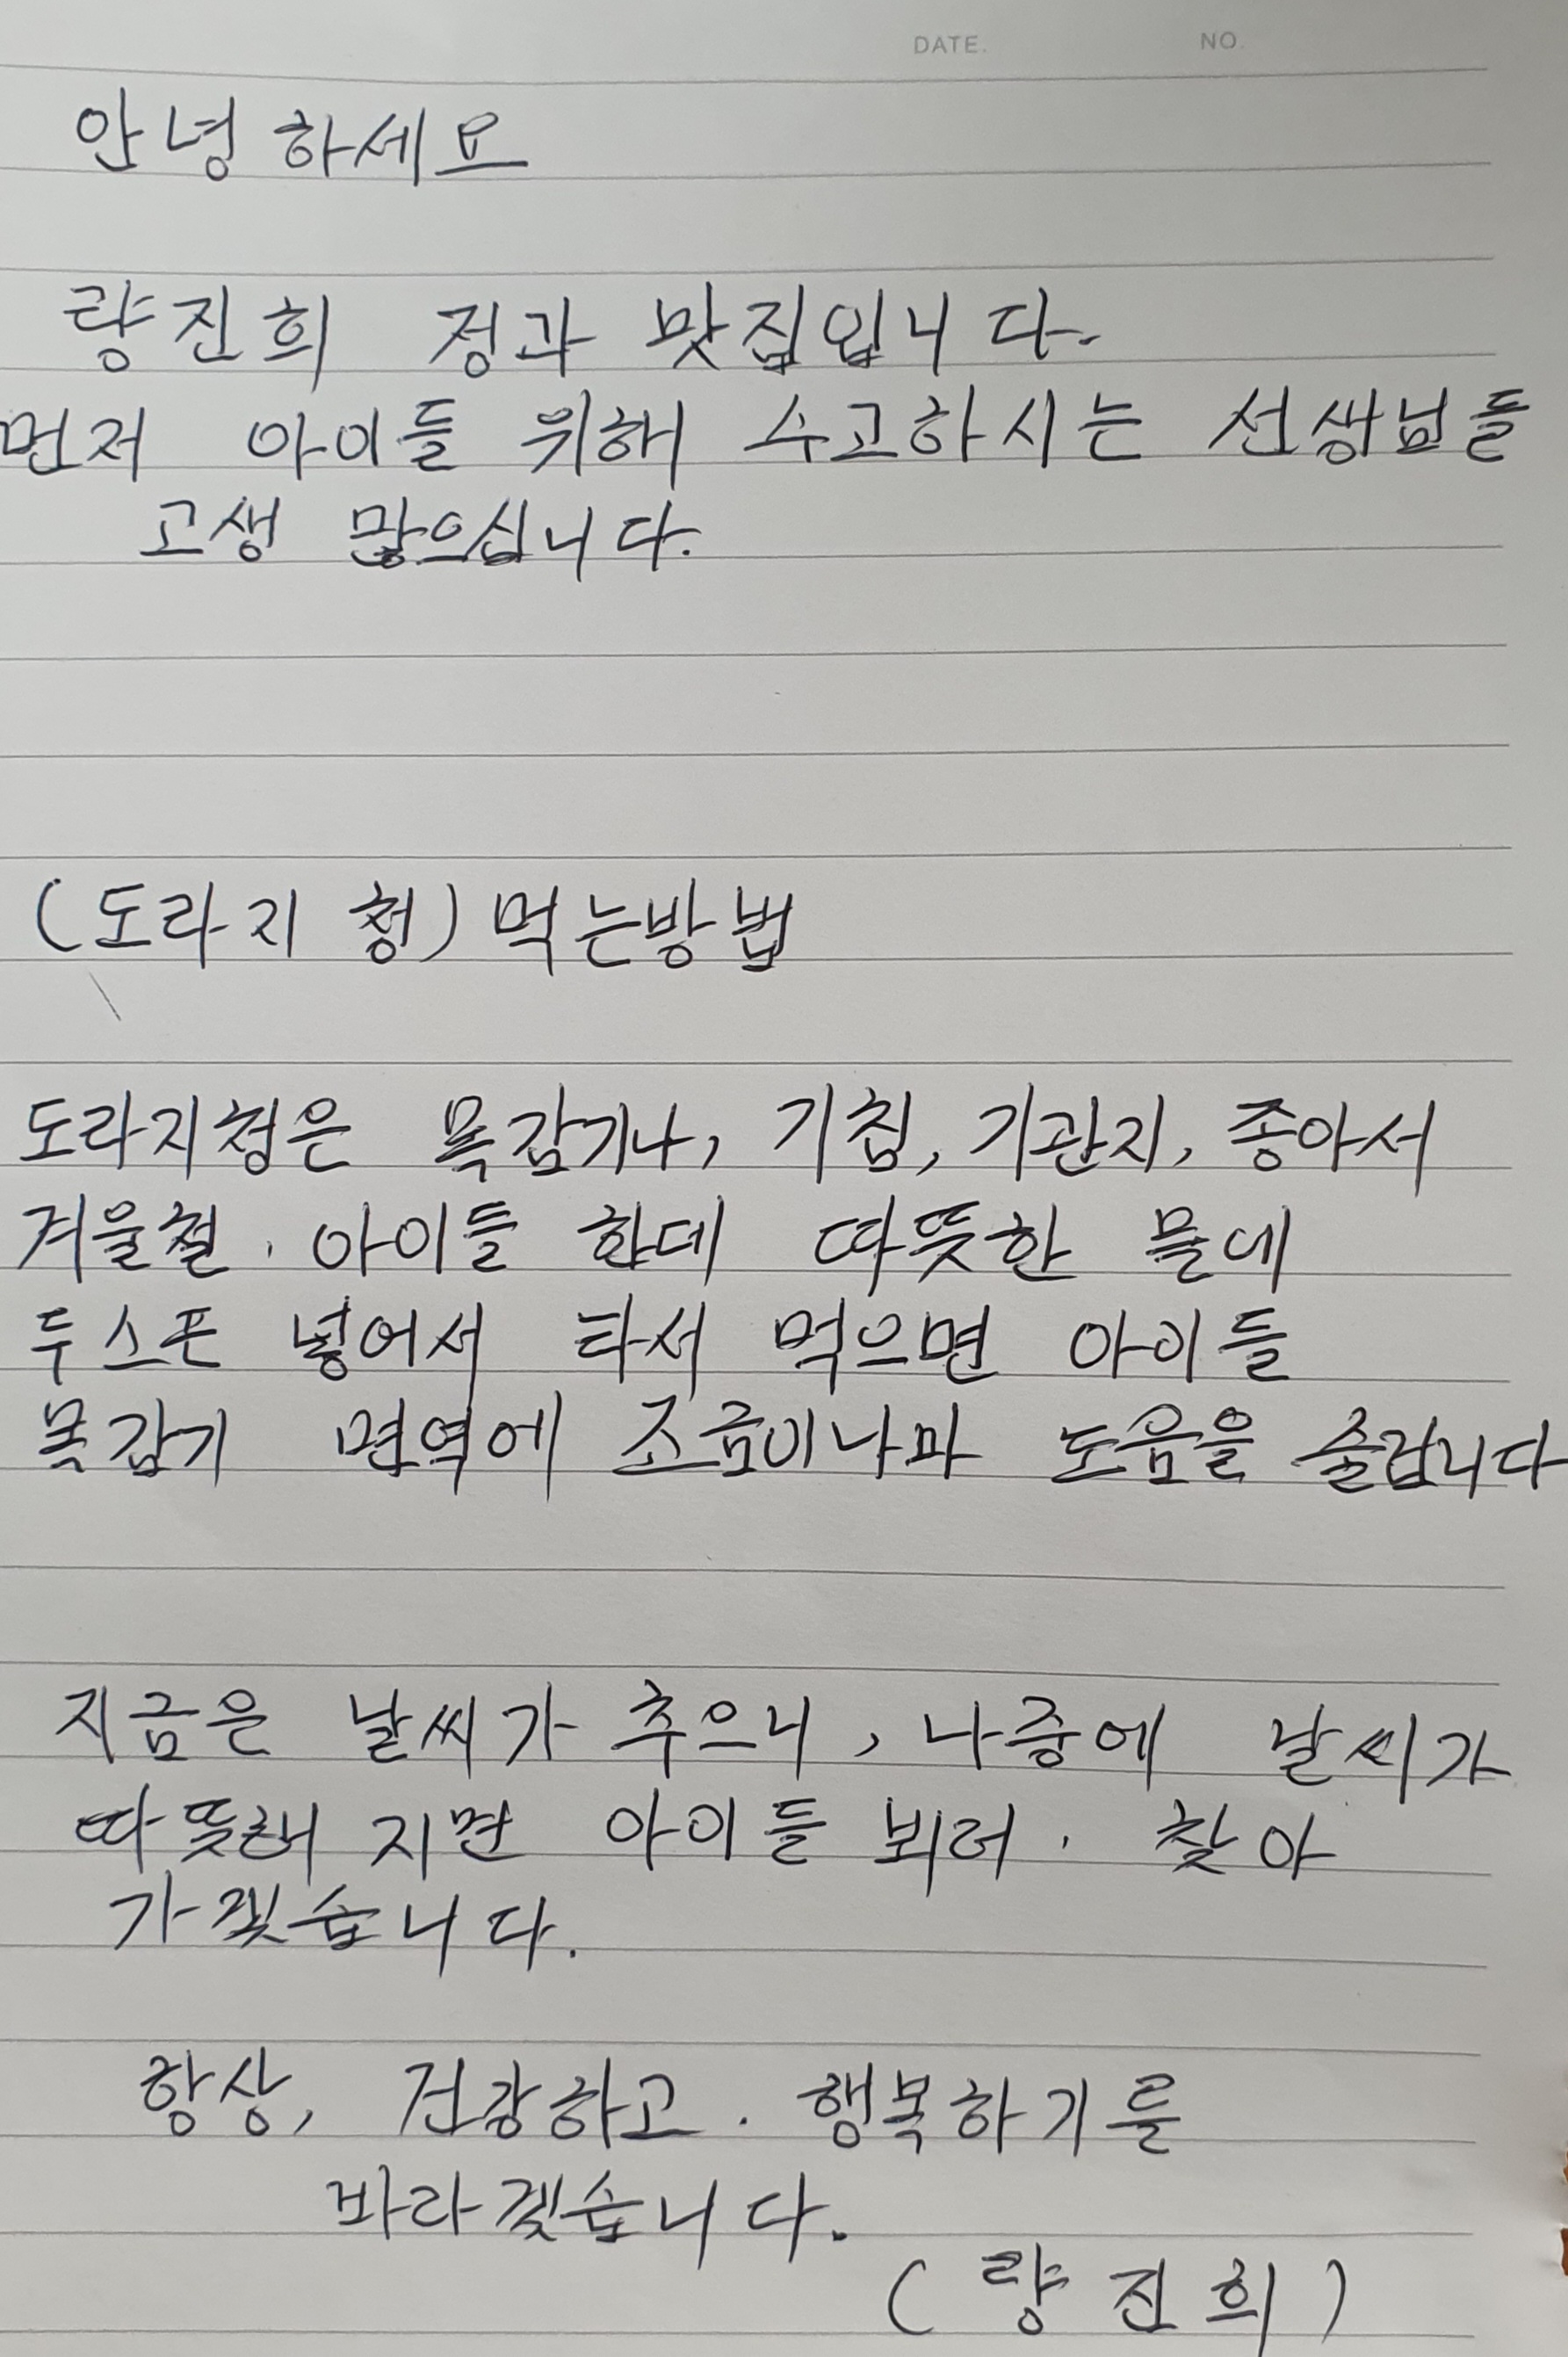 DATE. NO.
안녕하세요
량진희 정과 맛집입니다.
먼저 아이들 위해 수고하시는 선생님들
고생 많으십니다.
(도라지 청) 먹는방법
도라지청은 목감기나, 기침, 기관지, 좋아서
겨울철. 아이들 한데 따뜻한 물에
두스픈 넣어서 타서 먹으면 아이들
목감기 면역에 조금이나마 도움을 줄겁니다
지금은 날씨가 추으니, 나중에 날씨가
따뜻해 지면 아이들 뵈러. 찾아
가겟습니다.
항상, 건강하고. 행복하기를
바라겟습니다.
(량진희)